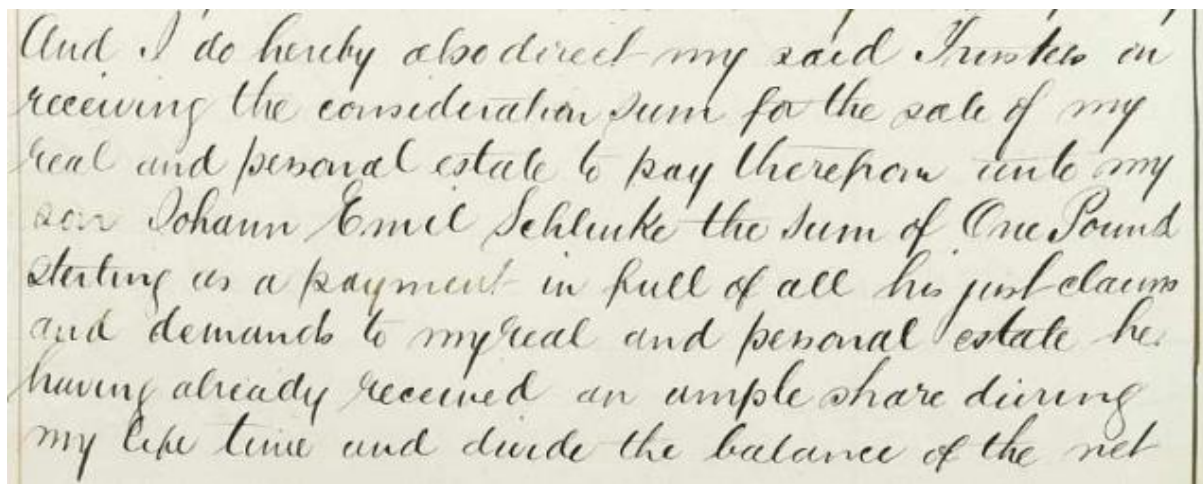 And I do hereby also direct my said Trustees in
receiving the consideration sum for the sale of my
real and personal estate to pay therefrom unto my
son Johann Emil Schlinke the sum of One Pound
sterling as a payment in full of all his just claims
and demands to my real and personal estate he
having already received an ample share during
my life time and divide the balance of the net